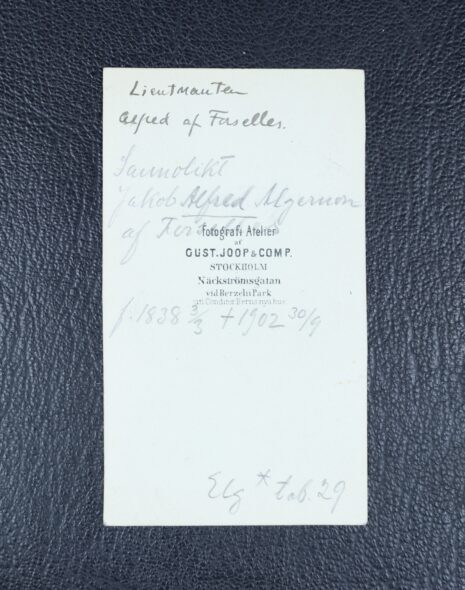 Lieutnanten
Alfred af Forselles.
Sannolikt
Jakob Alfred Algernon
af Forselles
fotografi Atelier
af
GUST. JOOP & COMP.
STOCKHOLM
Näckströmsgatan
vid Berzelii Park
f. 1838 3/3 + 1902 30/9
Elg * tab. 29